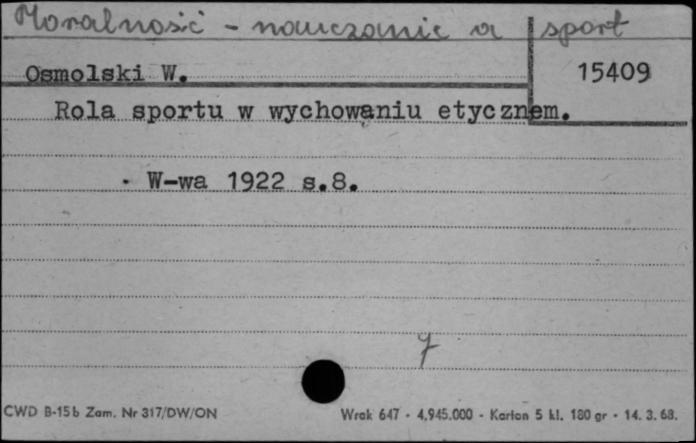 Moralność - nauczanie a sport
Osmolski W.
15409
Rola sportu w wychowaniu etycznem.
W-wa 1922 s.8.
7
CWD B-15b Zam. Nr 317/DW/ON
Wrak 647 - 4,945.000 - Karton 5 kl. 180 gr - 14. 3. 68.